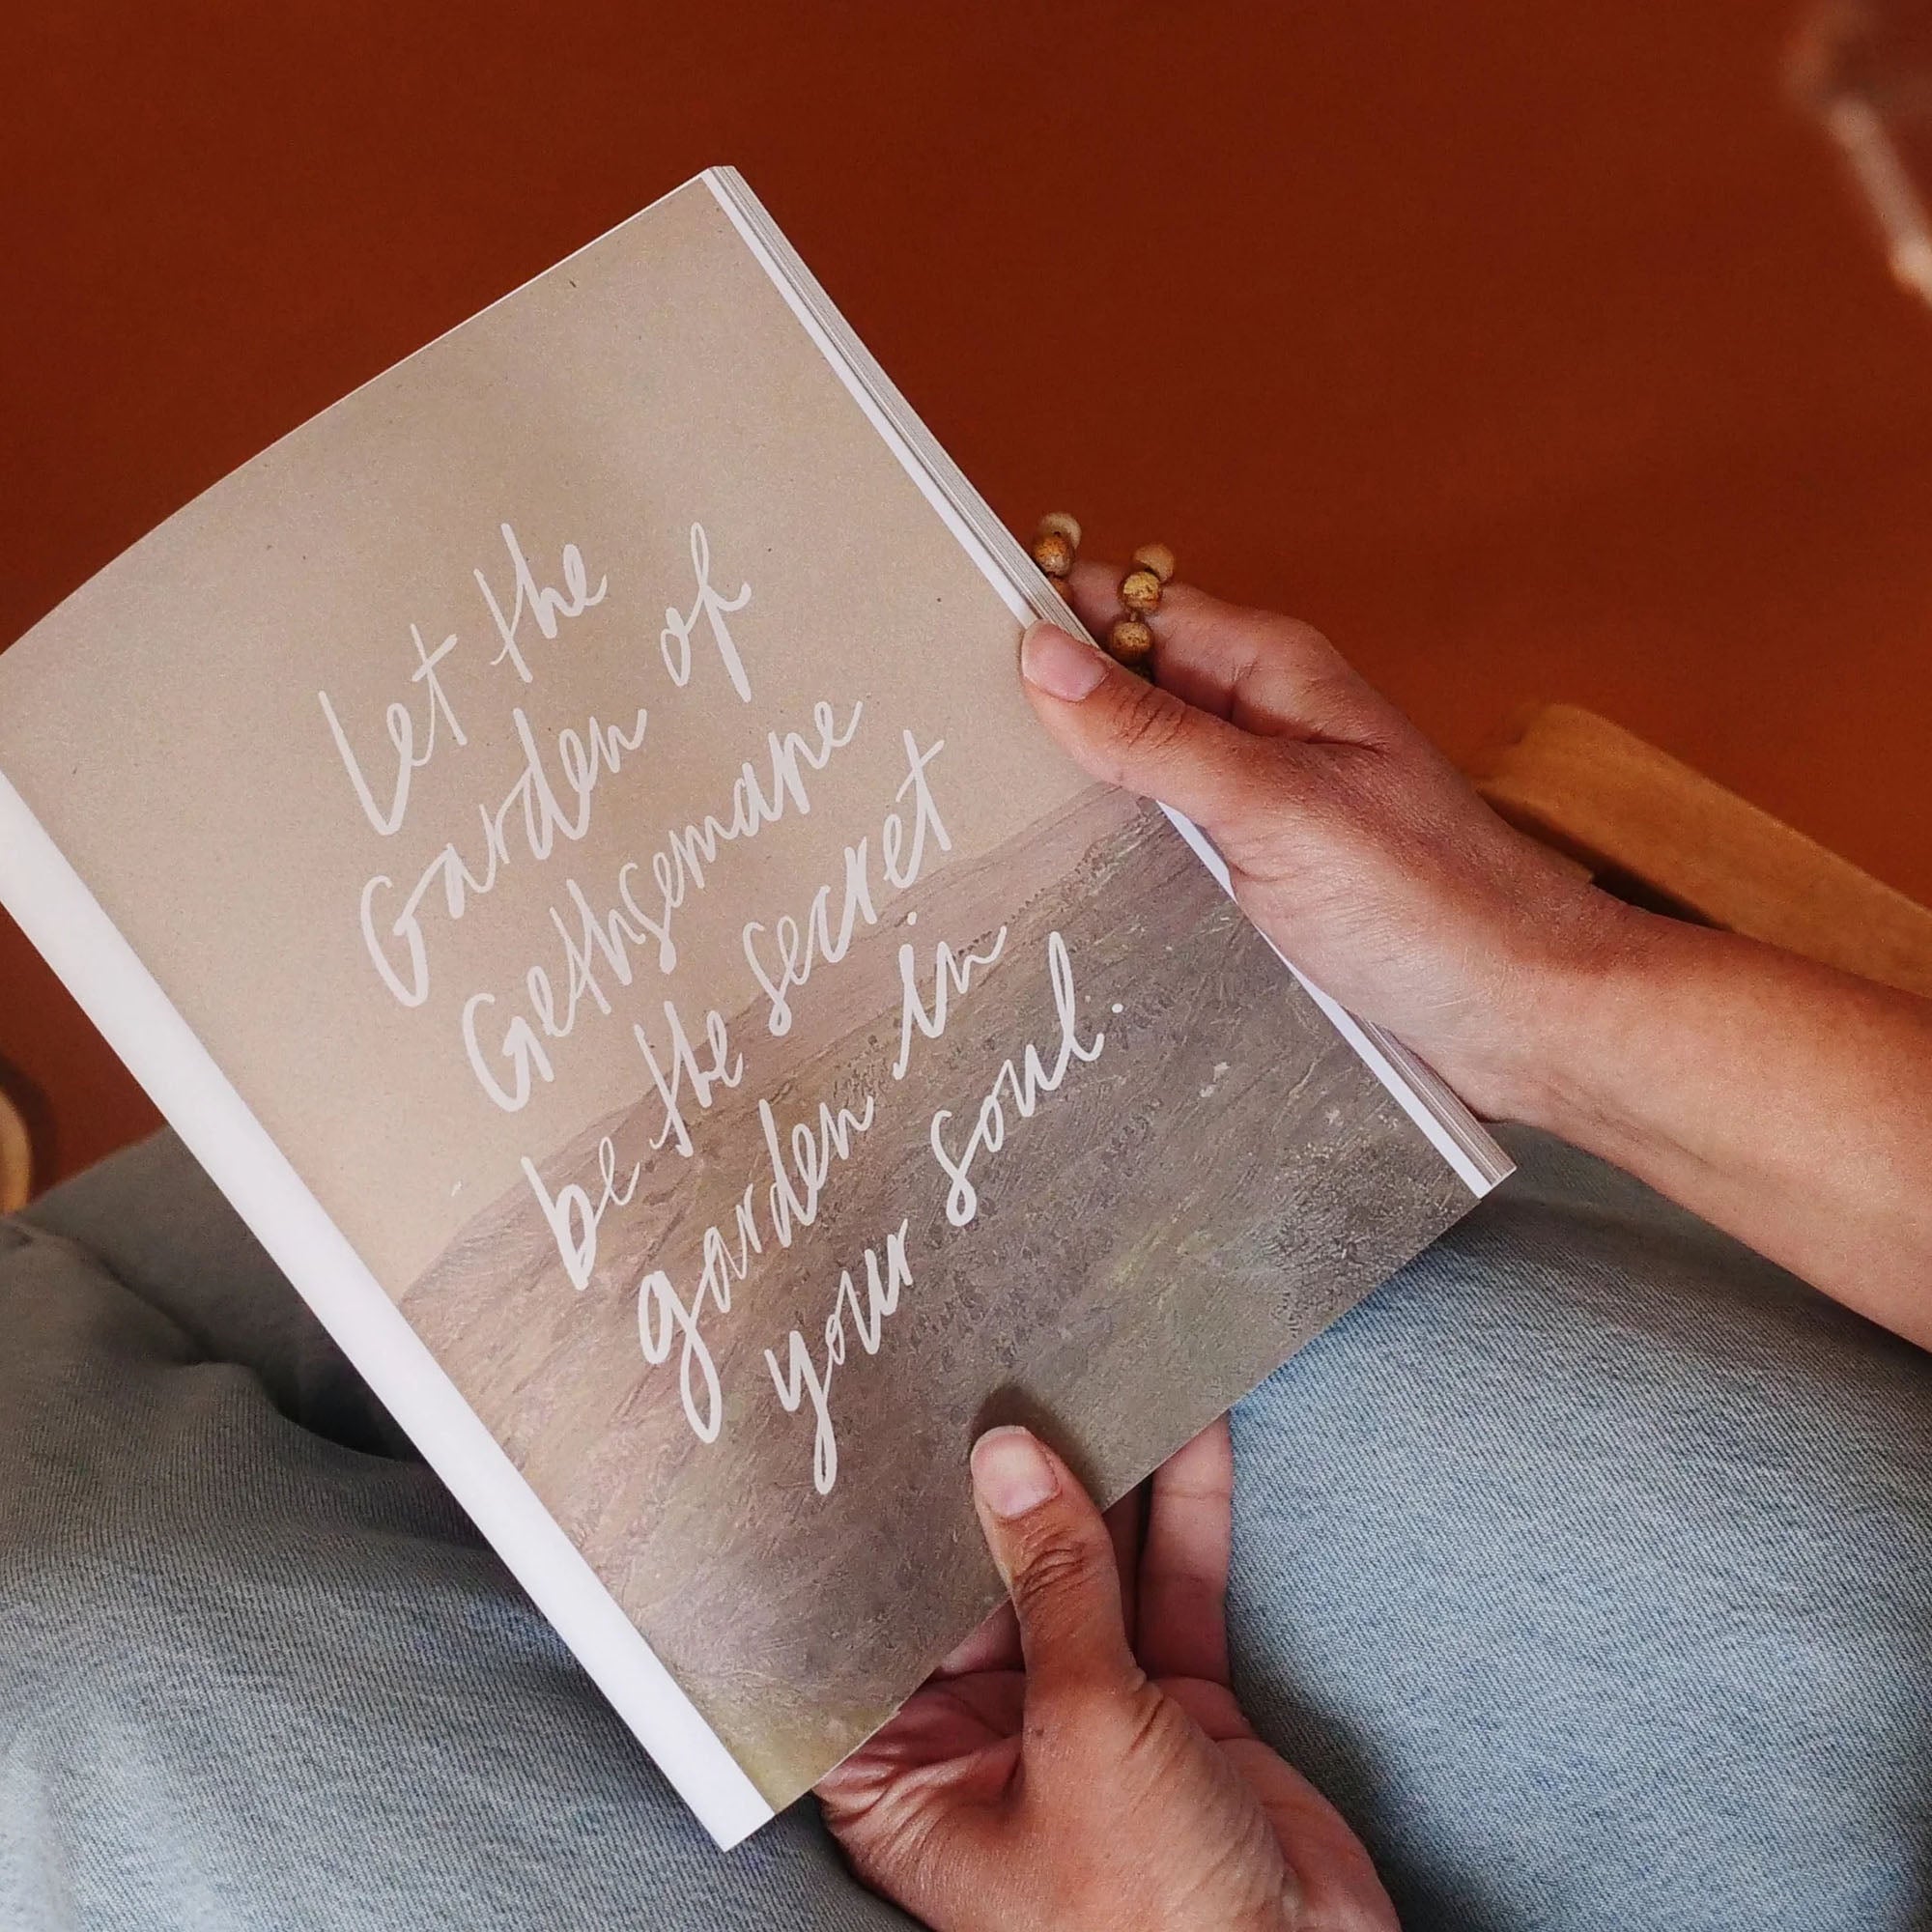 Let the
Garden of
Gethsemane
be the secret
garden in
your soul.